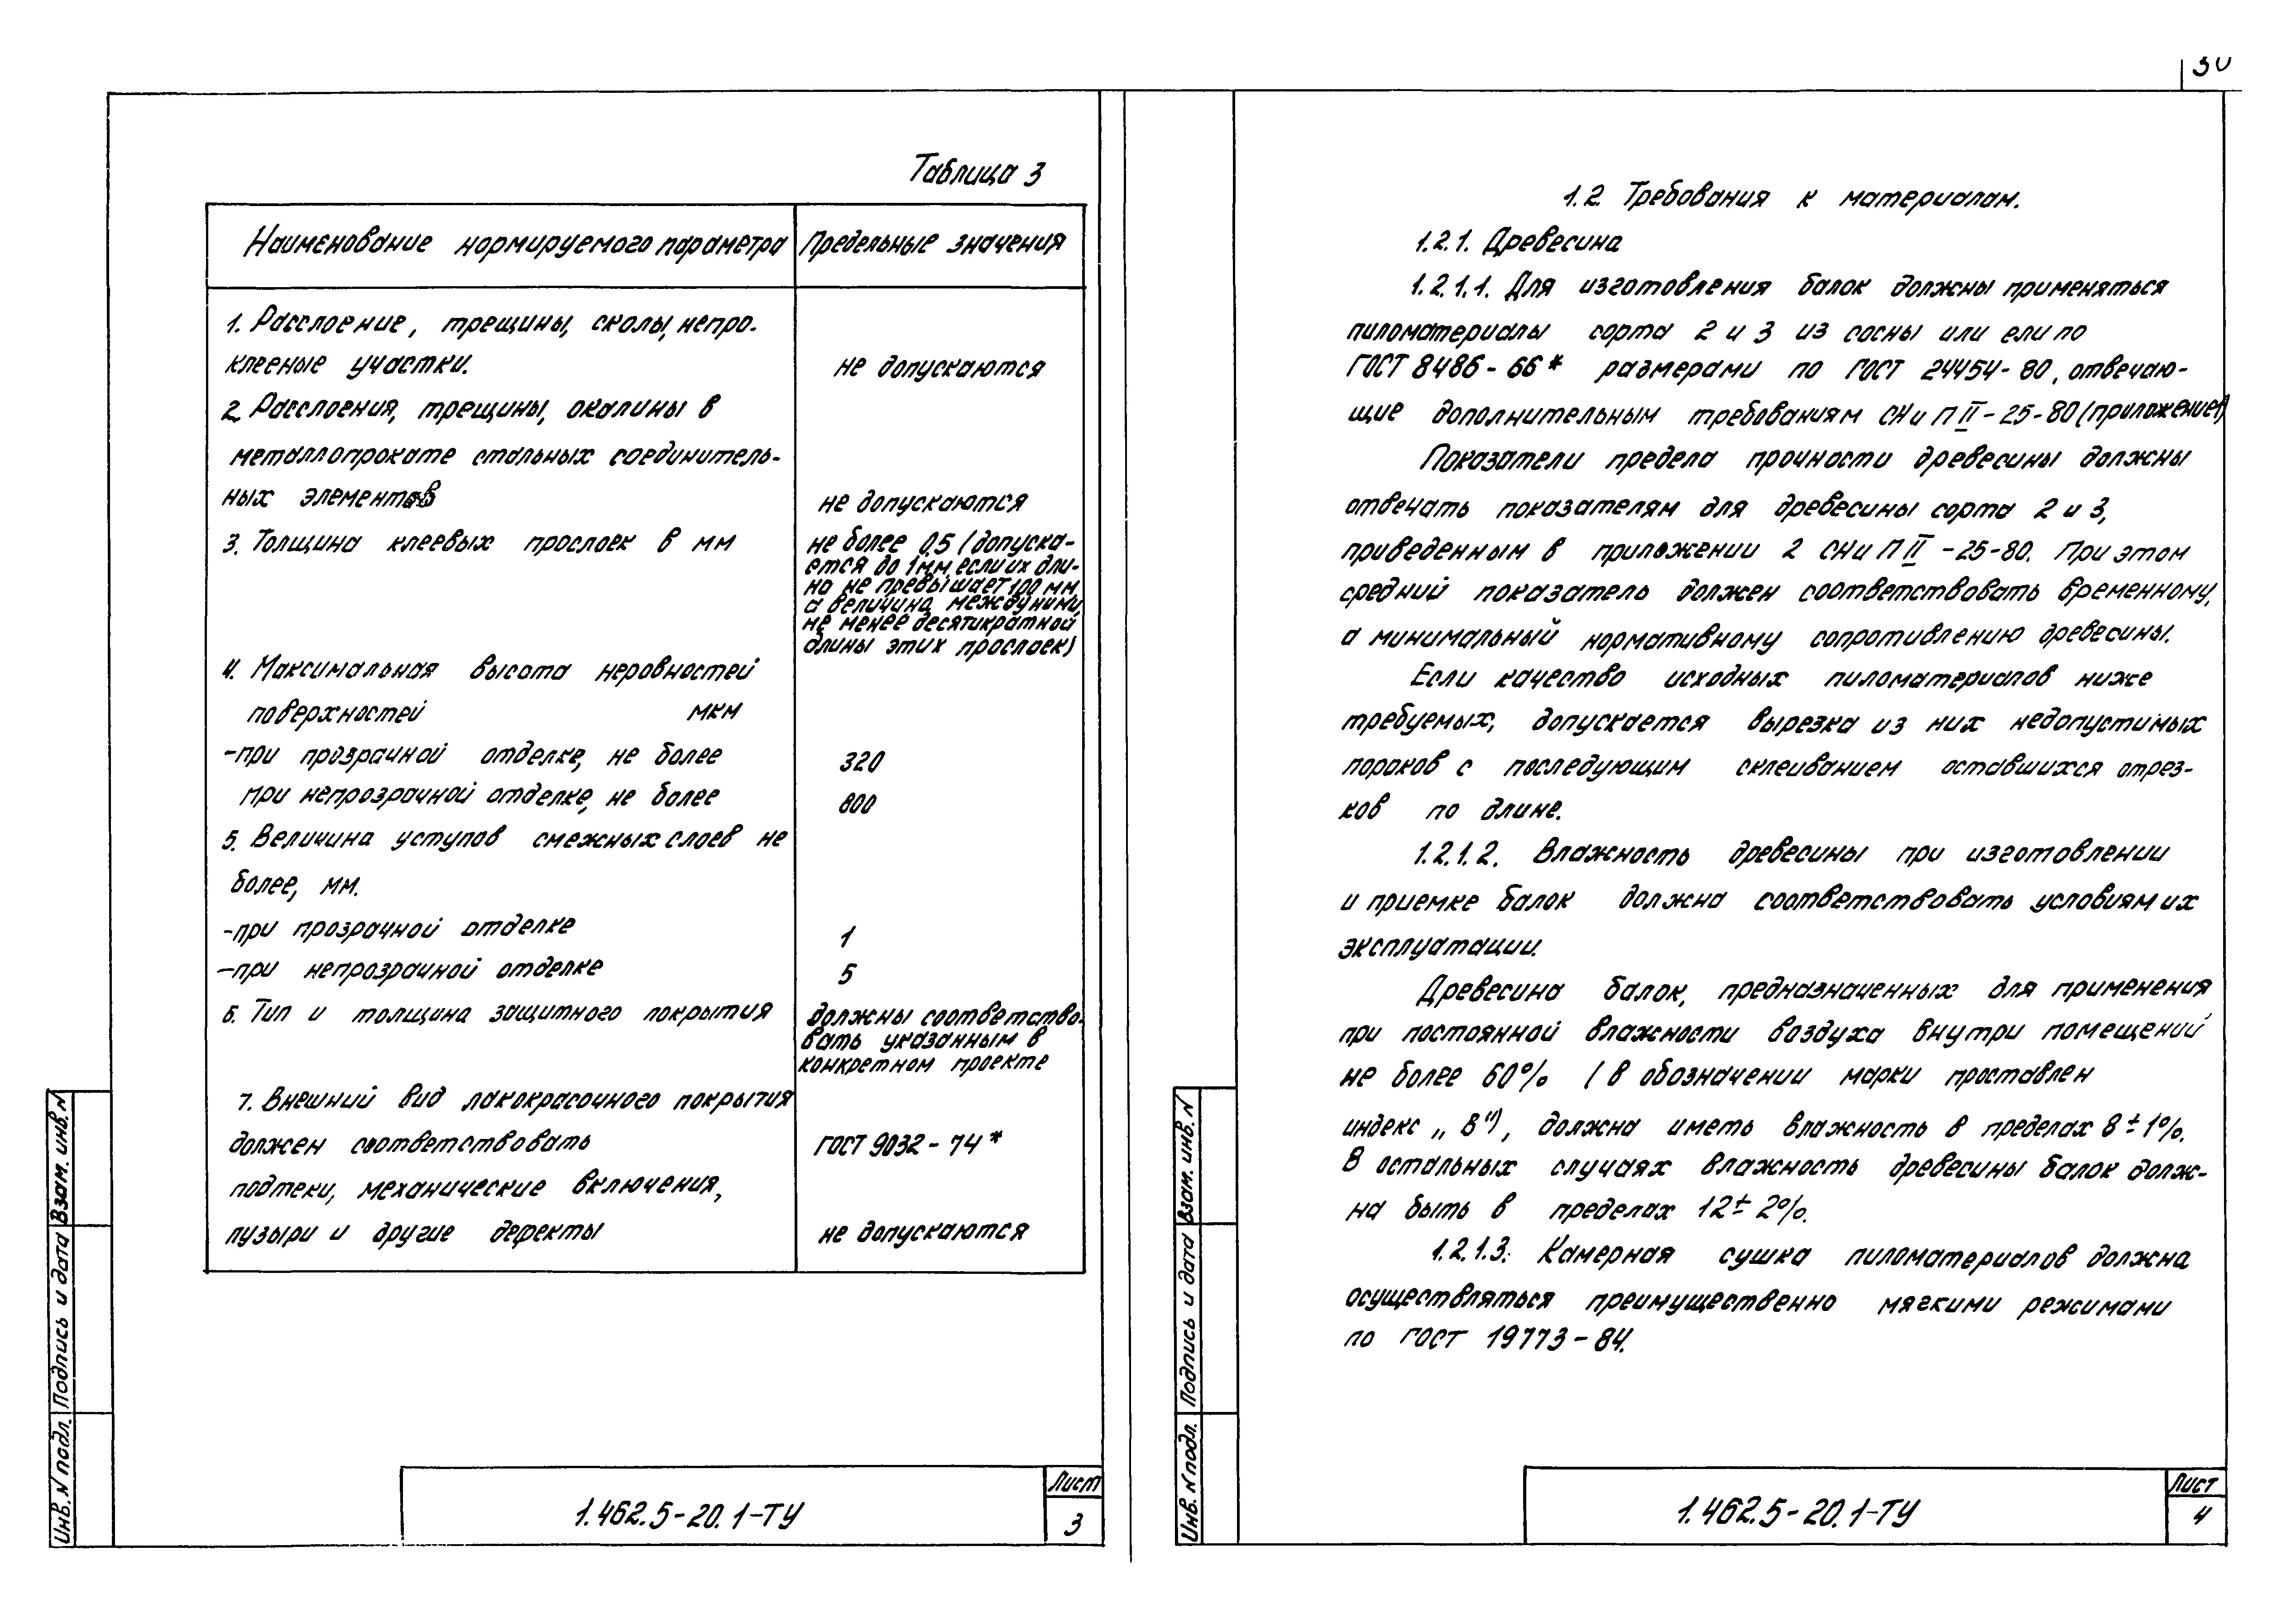 30
Таблица 3
Наименование нормируемого параметра
Предельные значения
1. Расслоение, трещины, сколы, непро-
клееные участки.
не допускаются
2. Расслоения, трещины, окалины в
металлопрокате стальных соединитель-
ных элементов
не допускаются
3. Толщина клеевых прослоек в мм
не более 0,5 (допуска-
ется до 1мм, если их дли-
на не превышает 100 мм,
а величина между ними,
не менее десятикратной
длины этих прослоек)
4. Максимальная высота неровностей
поверхностей мкм
-при прозрачной отделке, не более
320
при непрозрачной отделке, не более
800
5. Величина уступов смежных слоев не
более, мм.
-при прозрачной отделке
1
-при непрозрачной отделке
5
6. Тип и толщина защитного покрытия
должны соответство-
вать указанным в
конкретном проекте
7. Внешний вид лакокрасочного покрытия
должен соответствовать
ГОСТ 9032-74*
подтеки, механические включения,
пузыри и другие дефекты
не допускаются
Инв. N подл. Подпись и дата Взам. инв. N
1.462.5-20.1-ТУ
Лист
3
1.2 Требования к материалам.
1.2.1. Древесина
1.2.1.1. Для изготовления балок должны применяться
пиломатериалы сорта 2 и 3 из сосны или ели по
ГОСТ 8486-66* размерами по ГОСТ 24454-80, отвечаю-
щие дополнительным требованиям СНиП II-25-80 (приложение 1)
Показатели предела прочности древесины должны
отвечать показателям для древесины сорта 2 и 3,
приведенным в приложении 2 СНиП II-25-80. При этом
средний показатель должен соответствовать временному,
а минимальный нормативному сопротивлению древесины.
Если качество исходных пиломатериалов ниже
требуемых, допускается вырезка из них недопустимых
пороков с последующим склеиванием оставшихся отрез-
ков по длине.
1.2.1.2. Влажность древесины при изготовлении
и приемке балок должна соответствовать условиям их
эксплуатации.
Древесина балок, предназначенных для применения
при постоянной влажности воздуха внутри помещений
не более 60% (в обозначении марки проставлен
индекс „В“), должна иметь влажность в пределах 8±1%.
В остальных случаях влажность древесины балок долж-
на быть в пределах 12±2%.
1.2.1.3. Камерная сушка пиломатериалов должна
осуществляться преимущественно мягкими режимами
по ГОСТ 19773-84.
Инв. N подл. Подпись и дата Взам. инв. N
1.462.5-20.1-ТУ
Лист
4